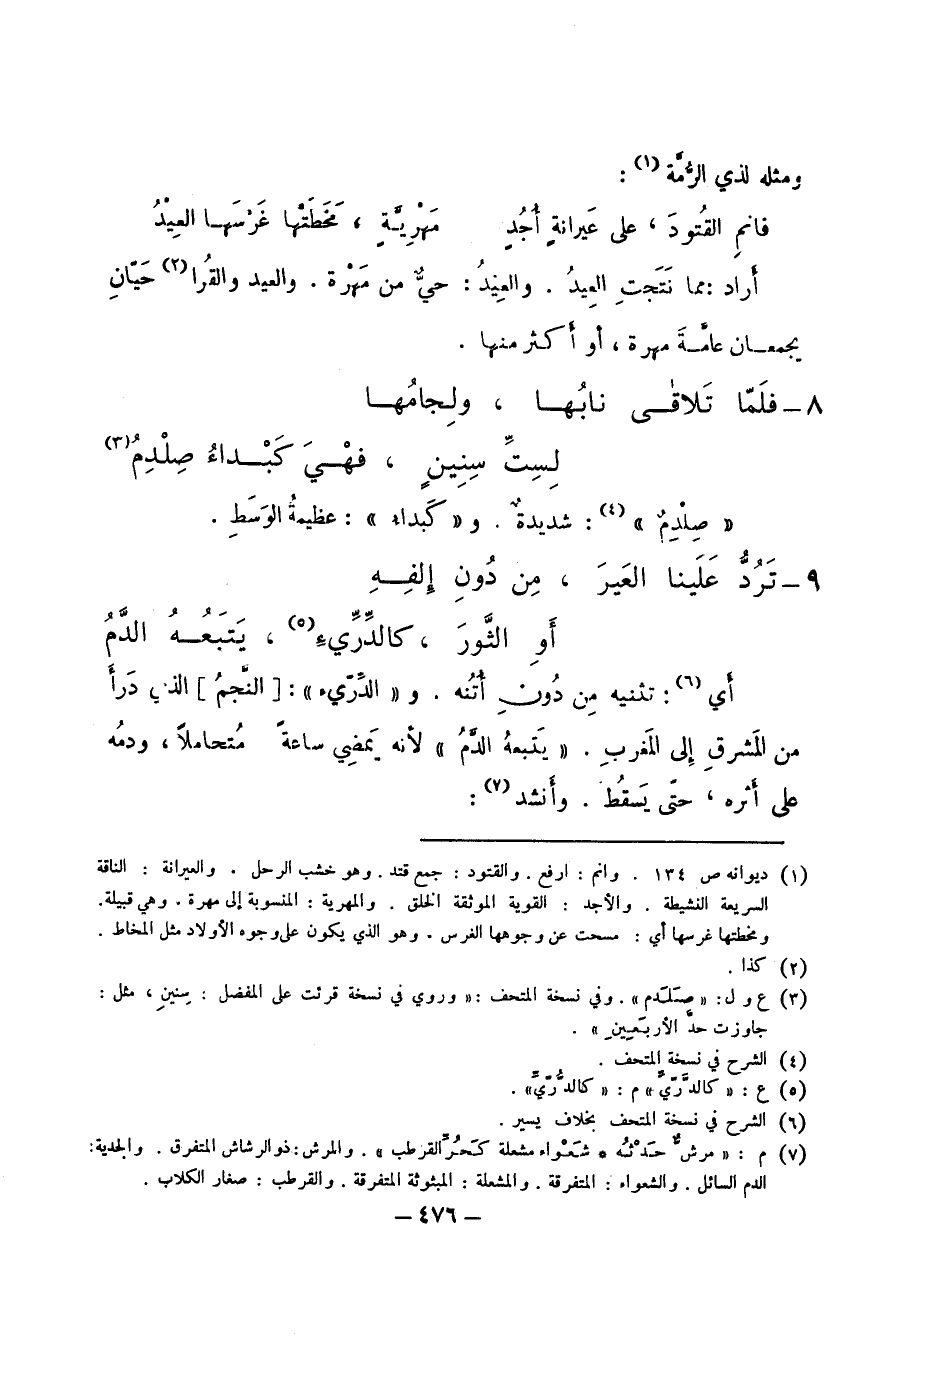 ومثله لذي الرُّمَّة (١) :
فانمِ القُتودَ ، على عَيرانةٍ أُجُدٍ    مَهْرِيَّةٍ ، مَخَطَتْها غَرْسَهـا العِيْدُ
أراد : مما نَتَجتِ العِيدُ . والعِيْدُ : حيٌّ من مَهْرة . والعيد والقُرا (٢) حَيّانِ
يجمعـان عامَّـةَ مهرة ، أو أكثر منها .
٨ – فلَمّا تَلاقـى نابُهـا ، ولِجامُهـا
لِسِتِّ سِنِينٍ ، فهْيَ كَبْـداءُ صِلْدِمُ (٣)
« صِلْدِمٌ » (٤) : شديدةٌ . و « كَبداء » : عظيمةُ الوَسَطِ .
٩ – تَرُدُّ عَلَينا العَيرَ ، مِن دُونِ إلفِـهِ
أوِ الثَّورَ ، كالدِّرِّيءِ (٥) ، يَتبَعُـهُ الدَّمُ
أي (٦) : تثنيه مِن دُونِ أُتُنه . و « الدِّرّيء » : [ النَّجمُ ] الذي دَرأَ
من المَشرقِ إلى المَغربِ . « يَتبعهُ الدَّمُ » لأنه يَمضِي ساعةً مُتحاملاً ، ودمُه
على أثره ، حتّى يَسقُطَ . وأنشد (٧) :
(١) ديوانه ص ١٣٤ . وانم : ارفع . والقتود : جمع قتد . وهو خشب الرحل . والعيرانة : الناقة
السريعة النشيطة . والأجد : القوية الموثقة الخلق . والمهرية : المنسوبة إلى مهرة . وهي قبيلة .
ومخطتها غرسها أي : مسحت عن وجوهها الغرس . وهو الذي يكون على وجوه الأولاد مثل المخاط .
(٢) كذا .
(٣) ع و ل : « صَلدم » . وفي نسخة المتحف : « وروي في نسخة قرئت على المفضل : سِنينِ ، مثل :
جاوزت حدَّ الأربَعِينِ » .
(٤) الشرح في نسخة المتحف .
(٥) ع : « كالدَّرّيّ » م : « كالدُّرّيّ » .
(٦) الشرح في نسخة المتحف بخلاف يسير .
(٧) م : « مرش حَدْثُه * شَعْواء مشعلة كَجُرِّ القرطب » . والمرش : ذو الرشاش المتفرق . والجدية :
الدم السائل . والشعواء : المتفرقة . والمشعلة : المبثوثة المتفرقة . والقرطب : صغار الكلاب .
– ٤٧٦ –